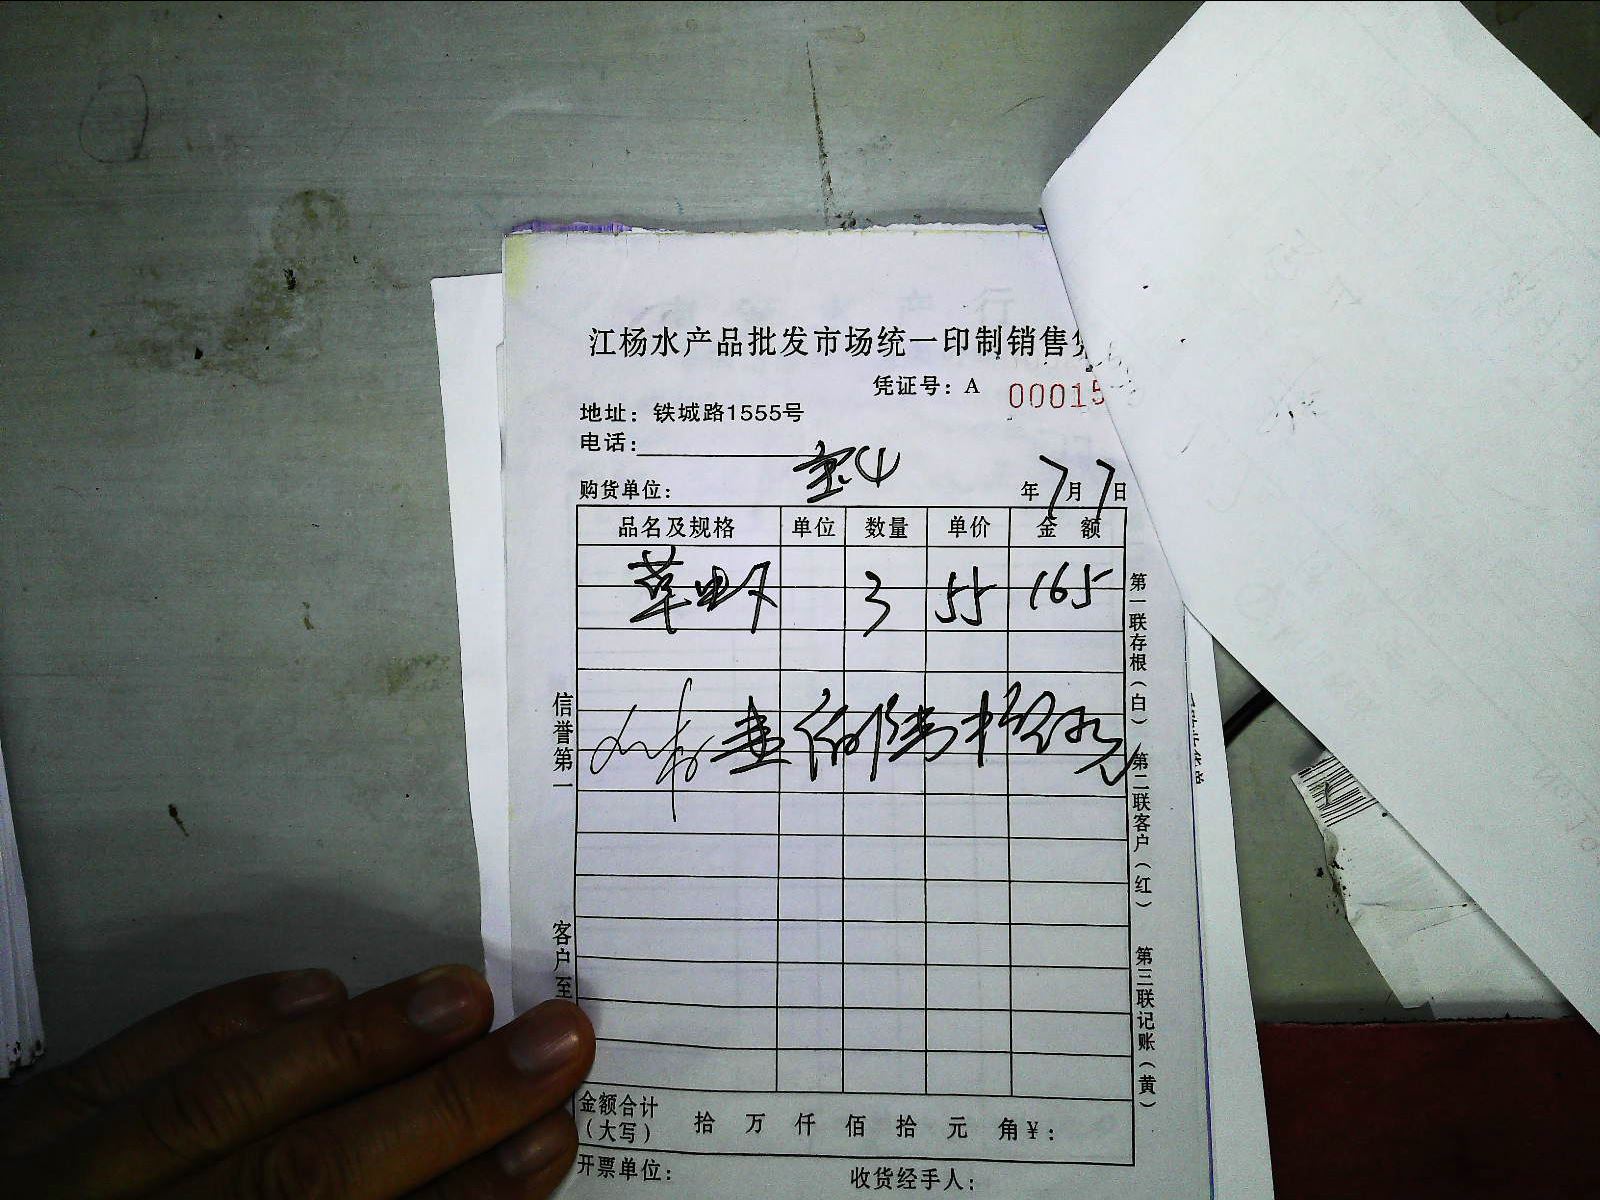 江杨水产品批发市场统一印制销售凭
凭证号：A 00015
地址：铁城路1555号
电话：
购货单位： 年7月7日
品名及规格 单位 数量 单价 金额
草虾 3 55 165
壹佰陆拾伍元
金额合计
（大写） 拾 万 仟 佰 拾 元 角￥：
开票单位： 收货经手人：
信誉第一 客户至
第一联存根（白） 第二联客户（红） 第三联记账（黄）